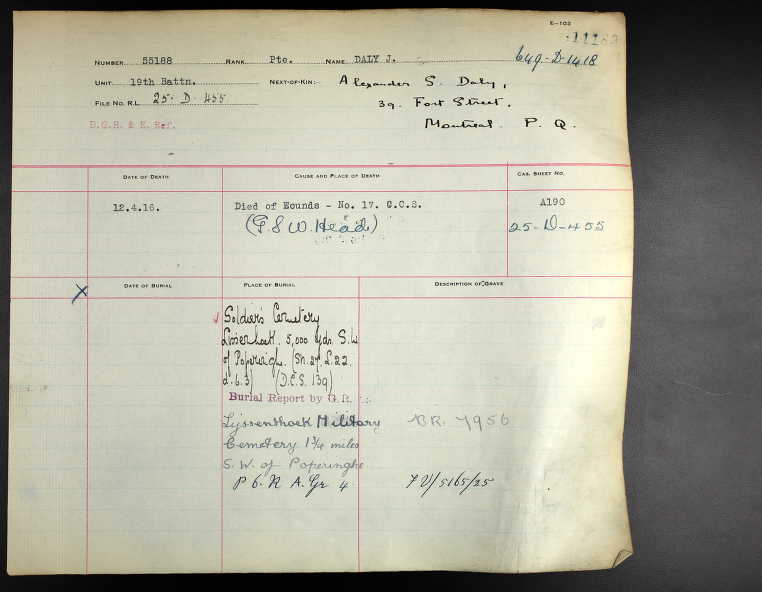 E-102
NUMBER 55188 RANK Pte. NAME DALY J. 649-D-1418
UNIT 19th Battn. NEXT-OF-KIN:- Alexander S. Daly,
FILE NO. R.L. 25-D-455 39. Fort Street.
D.G.R. & E. Ref. Montreal. P. Q.
DATE OF DEATH CAUSE AND PLACE OF DEATH CAS. SHEET NO.
12.4.16. Died of Wounds - No. 17. C.C.S. A190
(G.S.W. Head) 25-D-455
DATE OF BURIAL PLACE OF BURIAL DESCRIPTION OF GRAVE
Soldier's Cemetery
Lissenhoek. 5,000 yds. S.W.
of Poperinghe. (Sh. 27. L.22.
d.6.3) (D.C.S. 139)
Burial Report by G.R.
Lijssenthoek Military BR. 7956
Cemetery 1¾ miles
S. W. of Poperinghe
P 6. N A. Gr 4 7 V/5165/25